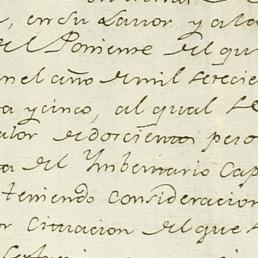 , en su Lavor y a la
del Poniente del qu
en el año de mil setecie
ta y cinco, al qual se
valor de doscientos peso
ta del Imbentario Cap
teniendo consideracion
or Situacion del que